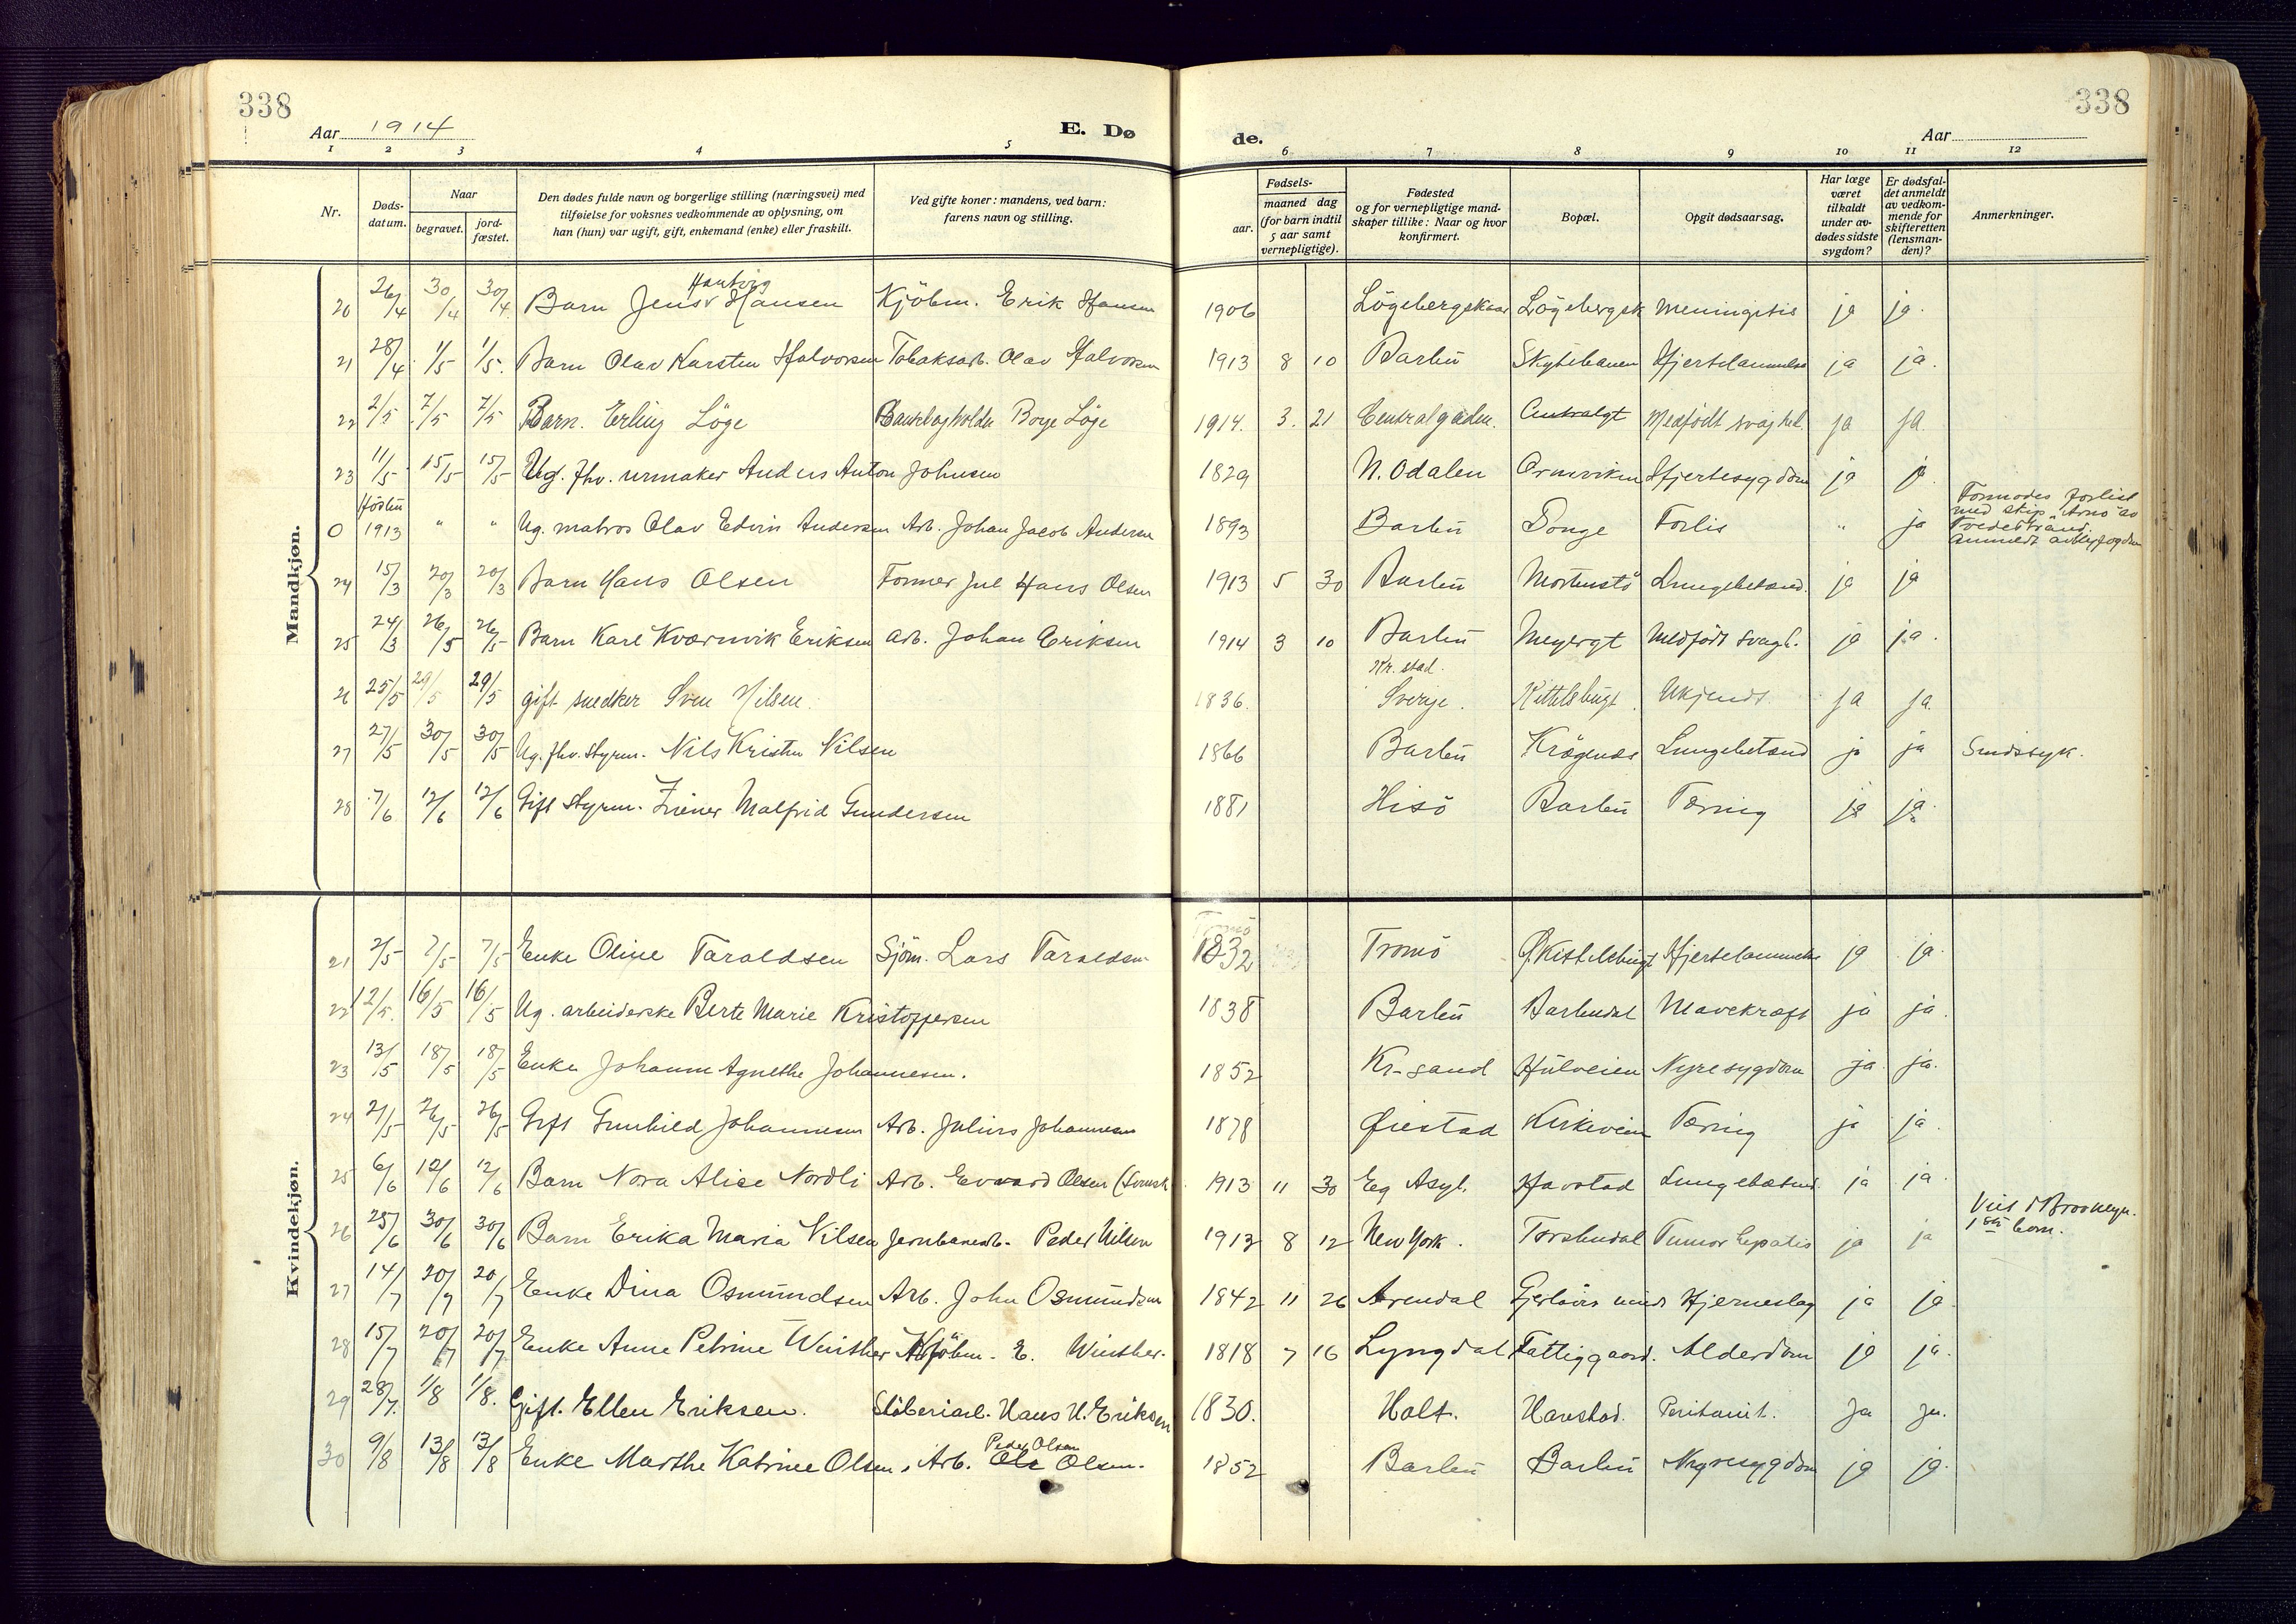 338
338
Aar 1914
E. Dø
de.
Aar
1 2 3 4 5 6 7 8 9 10 11 12
Nr.
Døds-datum.
Naar
begravet.
jord-fæstet.
Den dødes fulde navn og borgerlige stilling (næringsvei) med
tilføielse for voksnes vedkommende av oplysning, om
han (hun) var ugift, gift, enkemand (enke) eller fraskilt.
Ved gifte koner: mandens, ved barn:
farens navn og stilling.
Fødsels-
aar.
maaned dag
(for barn indtil
5 aar samt
vernepligtige).
Fødested
og for vernepligtige mand-
skaper tillike: Naar og hvor
konfirmert.
Bopæl.
Opgit dødsaarsag.
Har læge
været
tilkaldt
under av-
dødes sidste
sygdom?
Er dødsfal-
det anmeldt
av vedkom-
mende for
skifteretten
(lensman-
den)?
Anmerkninger.
Mandkjøn.
20 26/4 30/4 30/4 Barn Jens Hansen Kjöbm. Erik Hansen 1906 Lögebergskaar Lögebergsk Meningitis ja ja.
21 28/4 1/5 1/5. Barn Olav Karsten Halvorsen Tobaksarb. Olav Halvorsen 1913 8 10 Barbu Skytebanen Hjertelammelse ja ja.
22 2/5 7/5 7/5 Barn. Erling Löge Bankbogholder Borge Löge 1914. 3. 21 Centralgaden. Centralgt Medfödt svaghed. ja ja
23 11/5 15/5 15/5 Ug. fhv. urmaker Anders Anton Johnsen 1829 N. Odalen Ormviken Hjertesygdom ja ja
0 Hösten 1913 " " Ug. matros Olav Edvin Andersen Arb. Johan Jacob Andersen 1893 Barbu Songe Forlis " ja Formodes forlist
med skip "Arno" av
Tvedestrand.
24 15/3 20/3 20/3 Barn Hans Olsen Former Jul Hans Olsen 1913 5 30 Barbu Mortenstö Lungebetænd. ja ja
25 24/3 26/5 26/5 Barn Karl Kværnvik Eriksen Arb. Johan Eriksen 1914 3 10 Barbu Meyergt Medfödt svagh. ja ja.
26 25/5 29/5 29/5 gift snedker Sven Nilsen. 1836. Kr. stad. Sverige. Kittelsbugt. Ukjendt ja ja.
27 27/5 30/5 30/5 Ug. fhv. styrm. Nils Kristen Nilsen 1866 Barbu Krögenes Lungebetænd ja ja Sindssyk.
28 7/6 12/6 12/6 Gift styrm. Malfrid Gundersen 1881 Hisö Barbu Tæring ja ja.
Kvindekjøn.
21 2/5 7/5 7/5 Enke Oline Taraldsen Sjöm. Lars Taraldsen 1832 Tromö Kittelsbugt Hjertelammelse ja ja.
22 12/5. 16/5 16/5 Ug. arbeiderske Berte Marie Kristoffersen 1838 Barbu Barbudal Mavekræft ja ja.
23 13/5 18/5 18/5 Enke Johanne Agnethe Johannesen. 1852 Kr-sand Hulveien Nyresygdom ja ja.
24 21/5 26/5 26/5 Gift Gunhild Johannesen Arb. Julius Johannesen 1878 Øiestad Kirkeveien Tæring ja ja.
25 6/6 12/6 12/6 Barn Nora Alice Nordli Arb. Edvard Olsen (Svensk 1913 11 30 Eg Asyl. Havstad Lungebetænd. ja ja.
26 25/6 30/6 30/6 Barn Erika Maria Nilsen Jernbanearb. Peder Nilsen 1913 8 12 New York. Torsbudal Tumor hepatis ja ja Viet i Brooklyn.
1ste barn.
27 14/7 20/7 20/7 Enke Dina Osmundsen Arb. John Osmundsen 1842 11 26 Arendal Gjerlövs minde Hjerneslag ja ja
28 15/7 20/7 20/7 Enke Anne Petrine Winther Kjöbm. E. Winther. 1818 7 16 Lyngdal Fattiggaard. Alderdom ja ja.
29 28/7. 1/8 1/8. Gift. Ellen Eriksen. Støberiarb. Hans H. Eriksen 1830. Holt. Havstad. Peritonit. Ja ja.
30 9/8 13/8 13/8 Enke Marthe Katrine Olsen, Arb. Peder Olsen Ole Olsen. 1852 Barbu Barbu Nyresygdom ja ja.